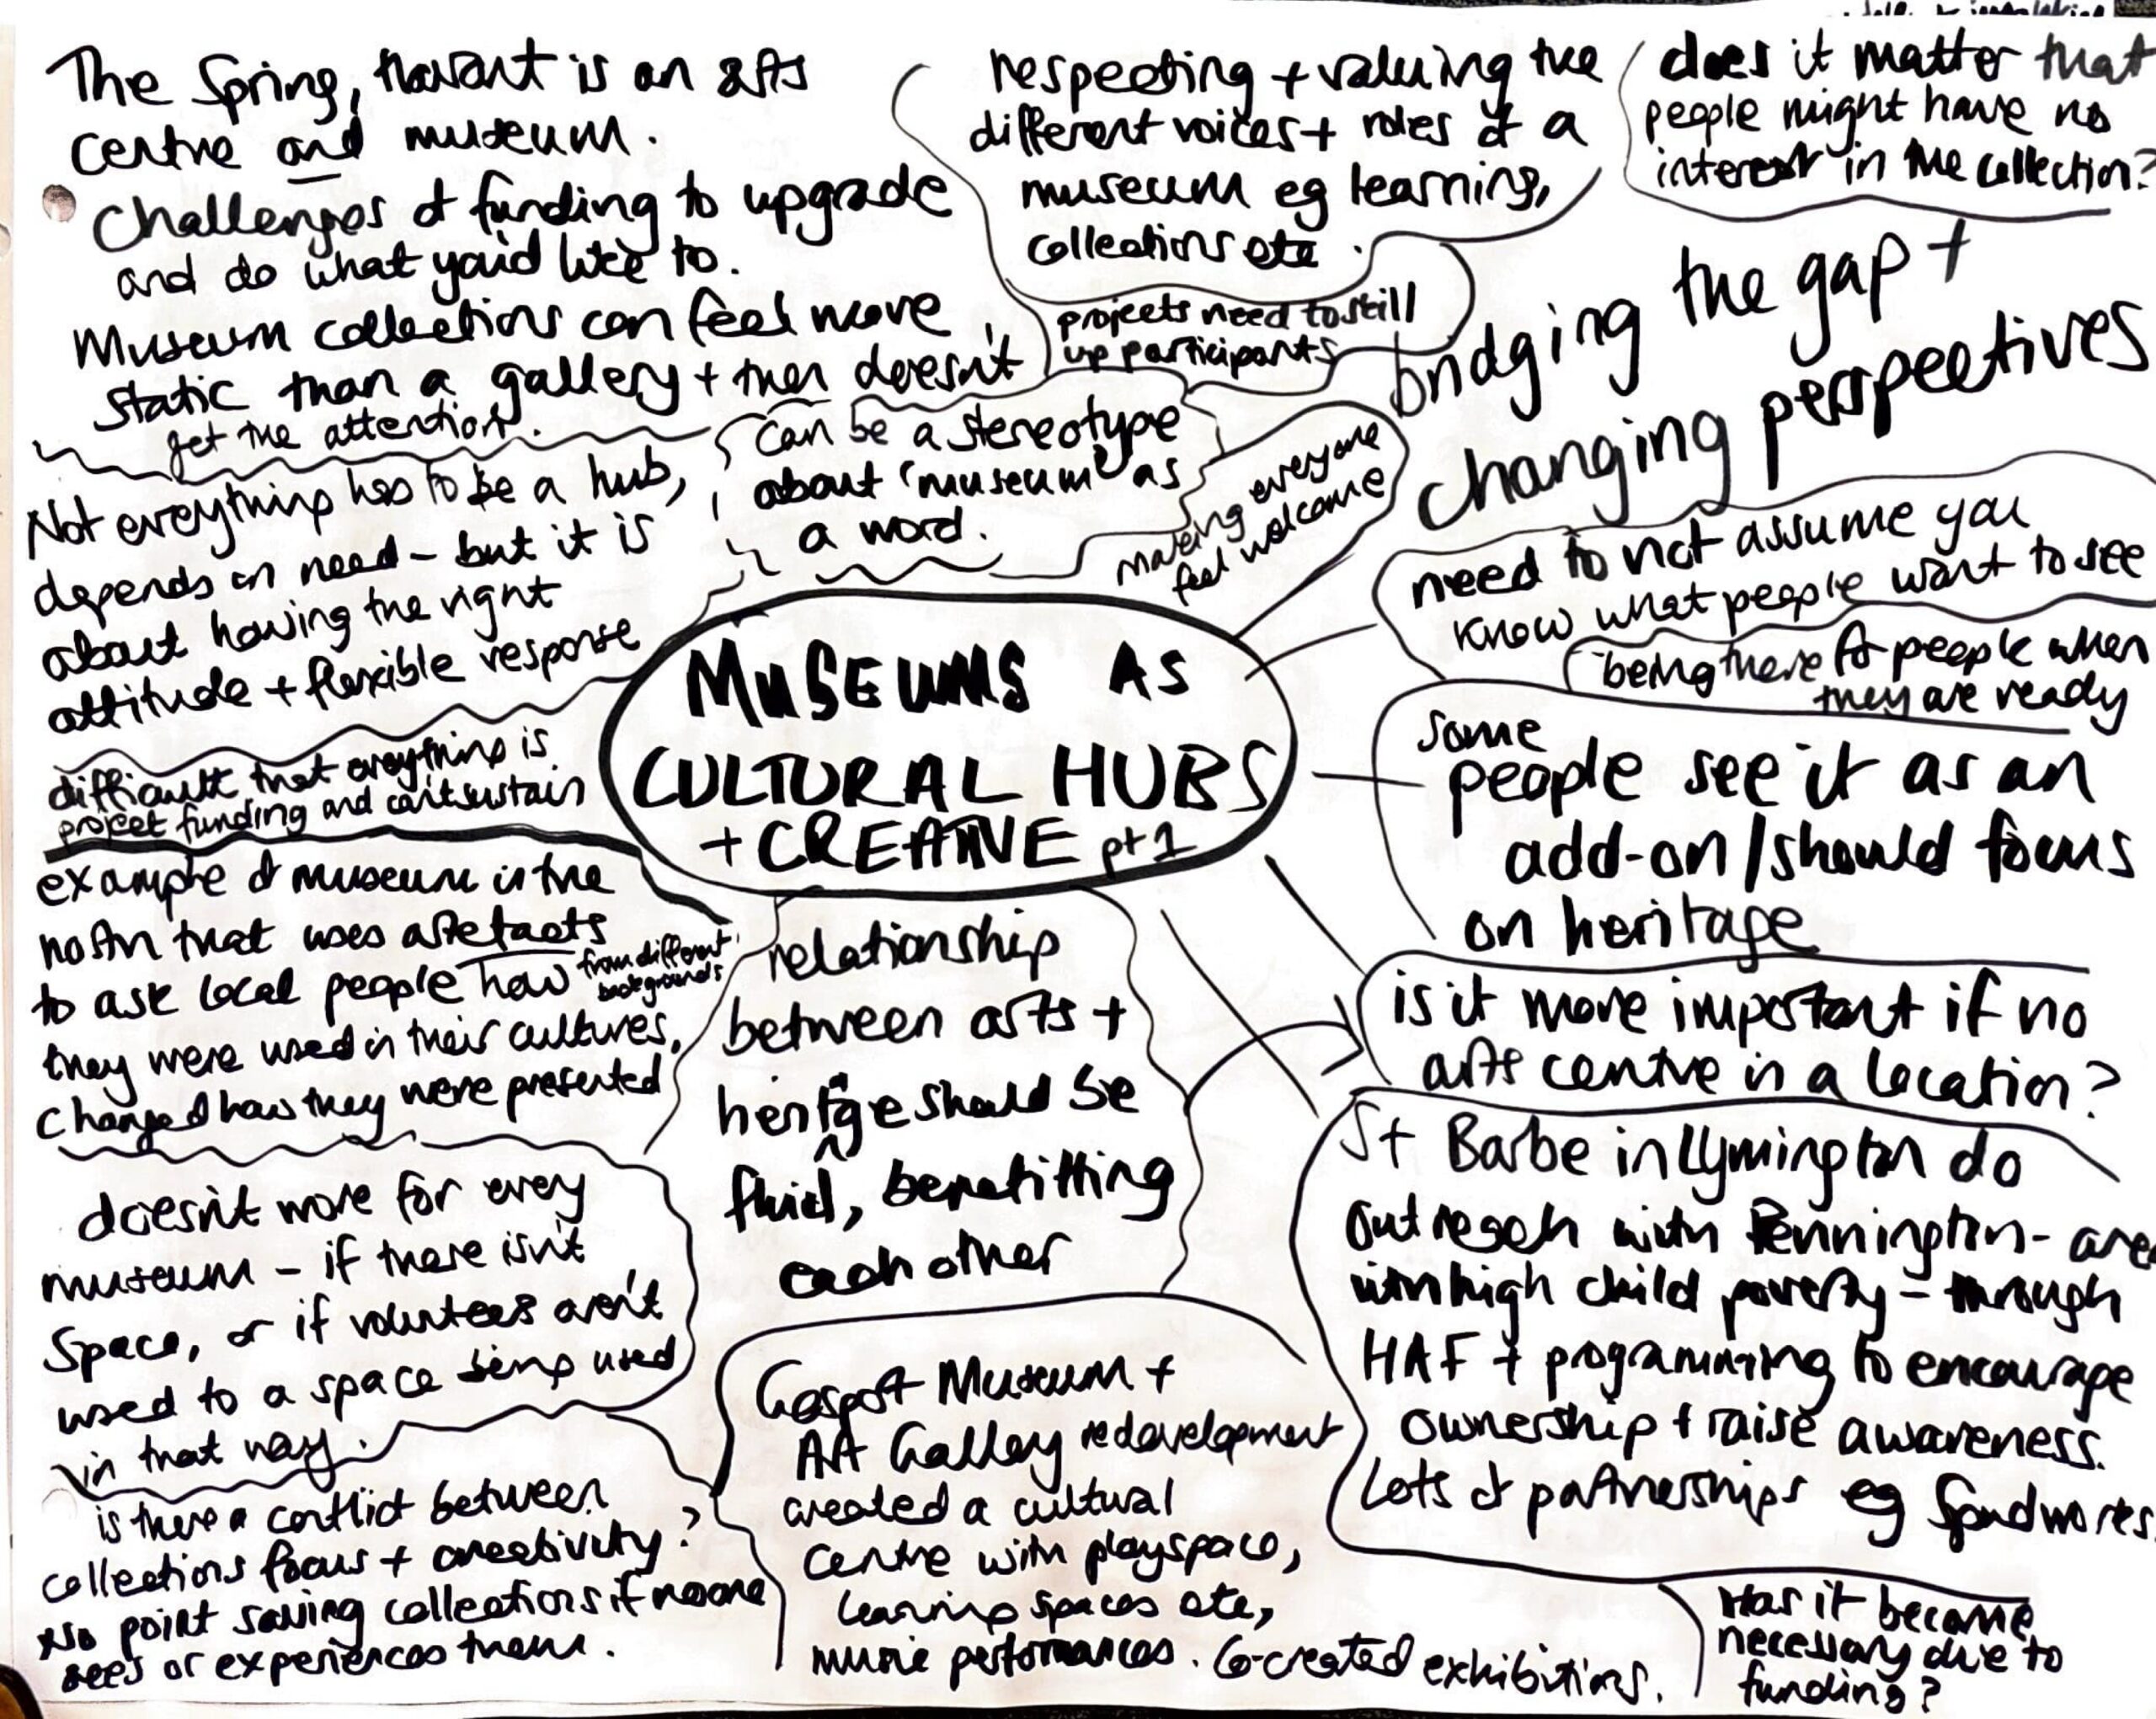 The Spring, Havant is an arts
centre and museum.
Challenges of funding to upgrade
and do what you'd like to.
Museum collections can feel more
static than a gallery + then doesn't
get the attention.
respecting + valuing the
different voices + roles of a
museum eg learning,
collections etc.
projects need to skill
up participants
does it matter that
people might have no
interest in the collection?
bridging the gap +
changing perspectives
Can be a stereotype
about 'museum' as
a word.
making everyone
feel welcome
Not everything has to be a hub,
depends on need - but it is
about having the right
attitude + flexible response
difficult that everything is
project funding and can't sustain
need to not assume you
know what people want to see
being there for people when
they are ready
MUSEUMS AS
CULTURAL HUBS
+ CREATIVE pt 1
some
people see it as an
add-on / should focus
on heritage
example of museum in the
north that uses artefacts
to ask local people how from different
backgrounds
they were used in their cultures,
changed how they were presented
relationship
between arts +
heritage should be
fluid, benefitting
each other
is it more important if no
arts centre in a location?
St Barbe in Lymington do
outreach with Pennington - area
with high child poverty - through
HAF + programming to encourage
ownership + raise awareness.
Lots of partnerships eg Spudworks.
doesn't work for every
museum - if there isn't
space, or if volunteers aren't
used to a space being used
in that way.
Gosport Museum +
Art Gallery redevelopment
created a cultural
centre with playspace,
learning spaces etc,
music performances. Co-created exhibitions.
is there a conflict between
collections focus + creativity?
No point saving collections if no one
sees or experiences them.
Has it become
necessary due to
funding?